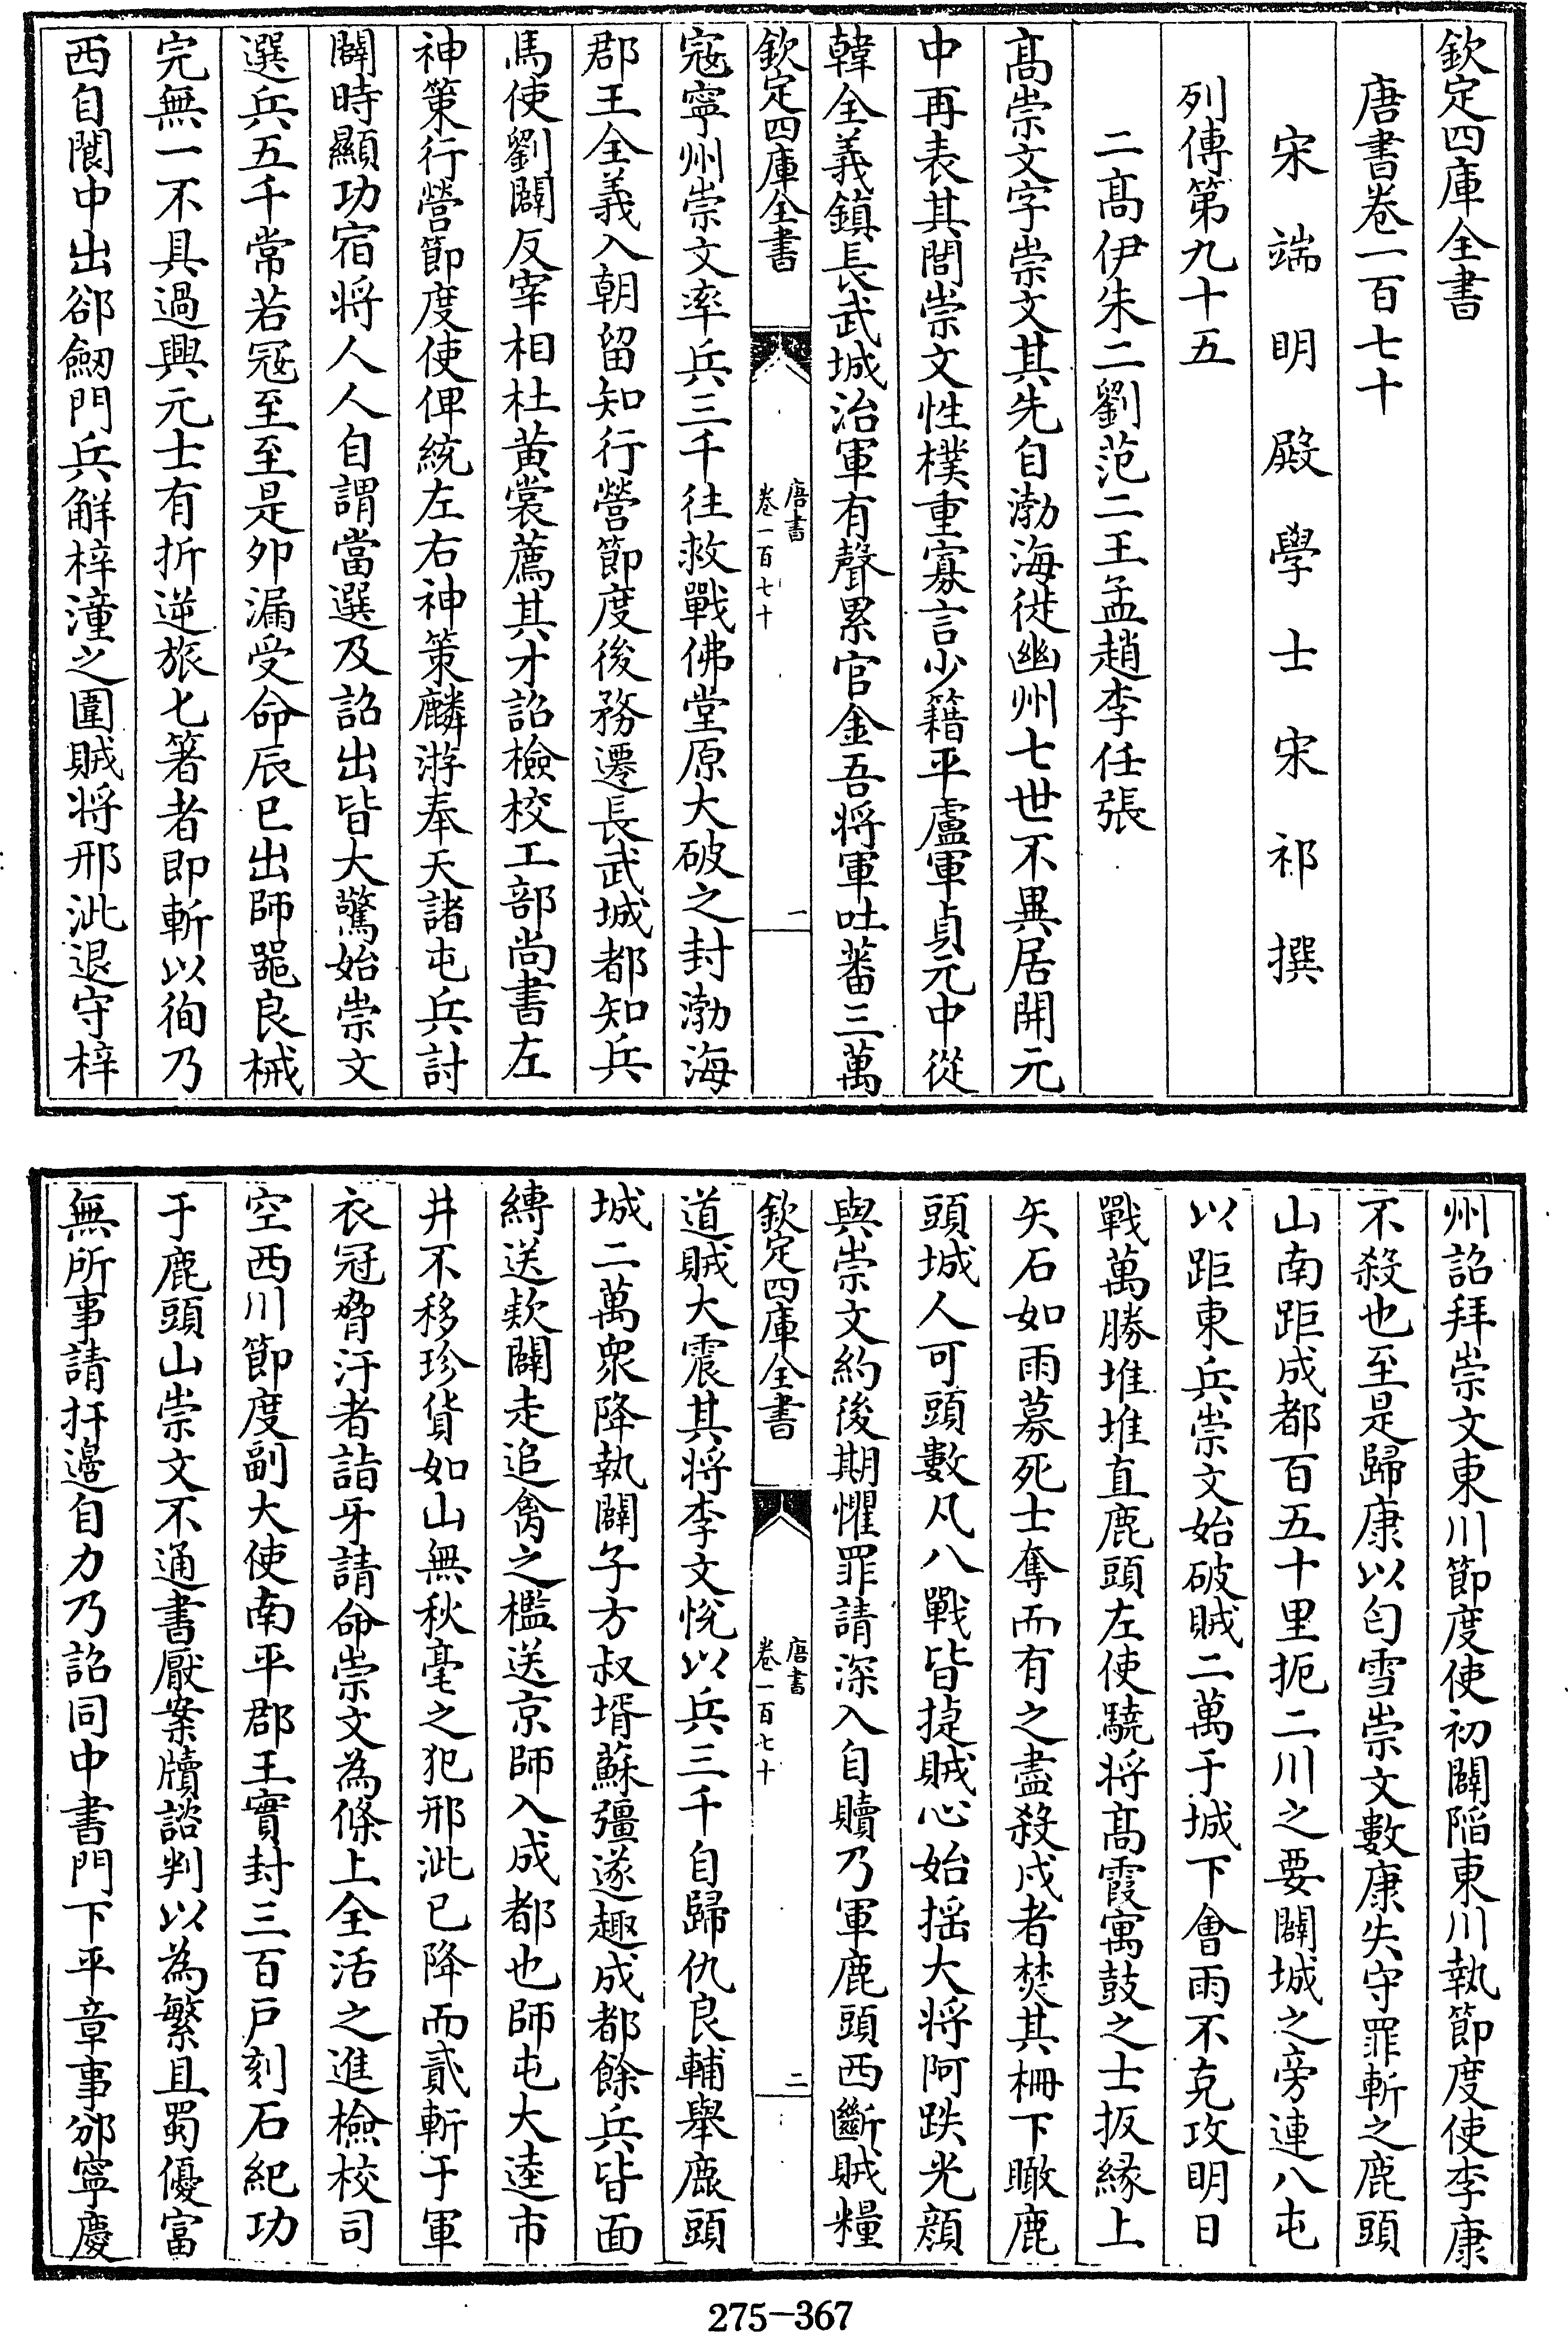 欽定四庫全書
唐書卷一百七十
宋端明殿學士宋祁撰
列傳第九十五
二髙伊朱二劉范二王孟趙李任張
髙崇文字崇文其先自渤海徙幽州七世不異居開元
中再表其閭崇文性樸重寡言少籍平盧軍貞元中從
韓全義鎮長武城治軍有聲累官金吾将軍吐蕃三萬
欽定四庫全書
唐書
卷一百七十
一
寇寧州崇文率兵三千往救戰佛堂原大破之封渤海
郡王全義入朝留知行營節度後務遷長武城都知兵
馬使劉闢反宰相杜黄裳薦其才詔檢校工部尚書左
神策行營節度使俾統左右神策麟游奉天諸屯兵討
闢時顯功宿将人人自謂當選及詔出皆大驚始崇文
選兵五千常若冦至至是夘漏受命辰已出師器良械
完無一不具過興元士有折逆旅匕箸者即斬以徇乃
西自閬中出郤劒門兵解梓潼之圍賊将邢泚退守梓
州詔拜崇文東川節度使初闢陷東川執節度使李康
不殺也至是歸康以匄雪崇文數康失守罪斬之鹿頭
山南距成都百五十里扼二川之要闢城之旁連八屯
以距東兵崇文始破賊二萬于城下會雨不克攻明日
戰萬勝堆堆直鹿頭左使驍将髙霞寓鼓之士扳緣上
矢石如雨募死士奪而有之盡殺戍者焚其柵下瞰鹿
頭城人可頭數凡八戰皆捷賊心始揺大将阿跌光顔
與崇文約後期懼罪請深入自贖乃軍鹿頭西斷賊糧
欽定四庫全書
唐書
卷一百七十
二
道賊大震其将李文悅以兵三千自歸仇良輔舉鹿頭
城二萬衆降執闢子方叔壻蘇彊遂趣成都餘兵皆面
縛送欵闢走追禽之檻送京師入成都也師屯大逵市
井不移珍貨如山無秋毫之犯邢泚已降而貳斬于軍
衣冠脅汙者詣牙請命崇文為條上全活之進檢校司
空西川節度副大使南平郡王實封三百戸刻石紀功
于鹿頭山崇文不通書厭案牘諮判以為繁且蜀優富
無所事請扞邊自力乃詔同中書門下平章事邠寧慶
275-367